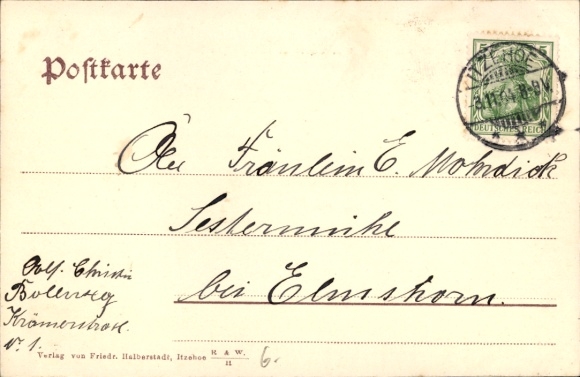 Postkarte
5 5
ITZEHOE
8.11.04 8-9V.
DEUTSCHES REICH
An Fräulein E. Mohrdick
Sestermühe
bei Elmshorn.
Christi
Krämerstrasse
No. 1.
Verlag von Friedr. Halberstadt, Itzehoe
R & W.
11
6.